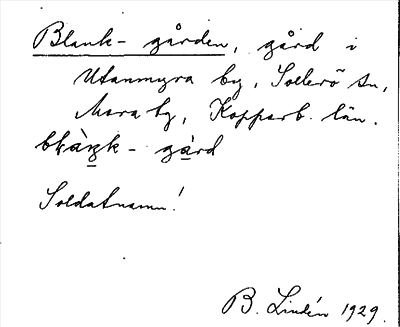 Blank- gården, gård i
Utanmyra by, Sollerö sn,
Mora tg, Kopparb. län.
blàŋk - gàrd
Soldatnamn!
B. Lindén 1929.